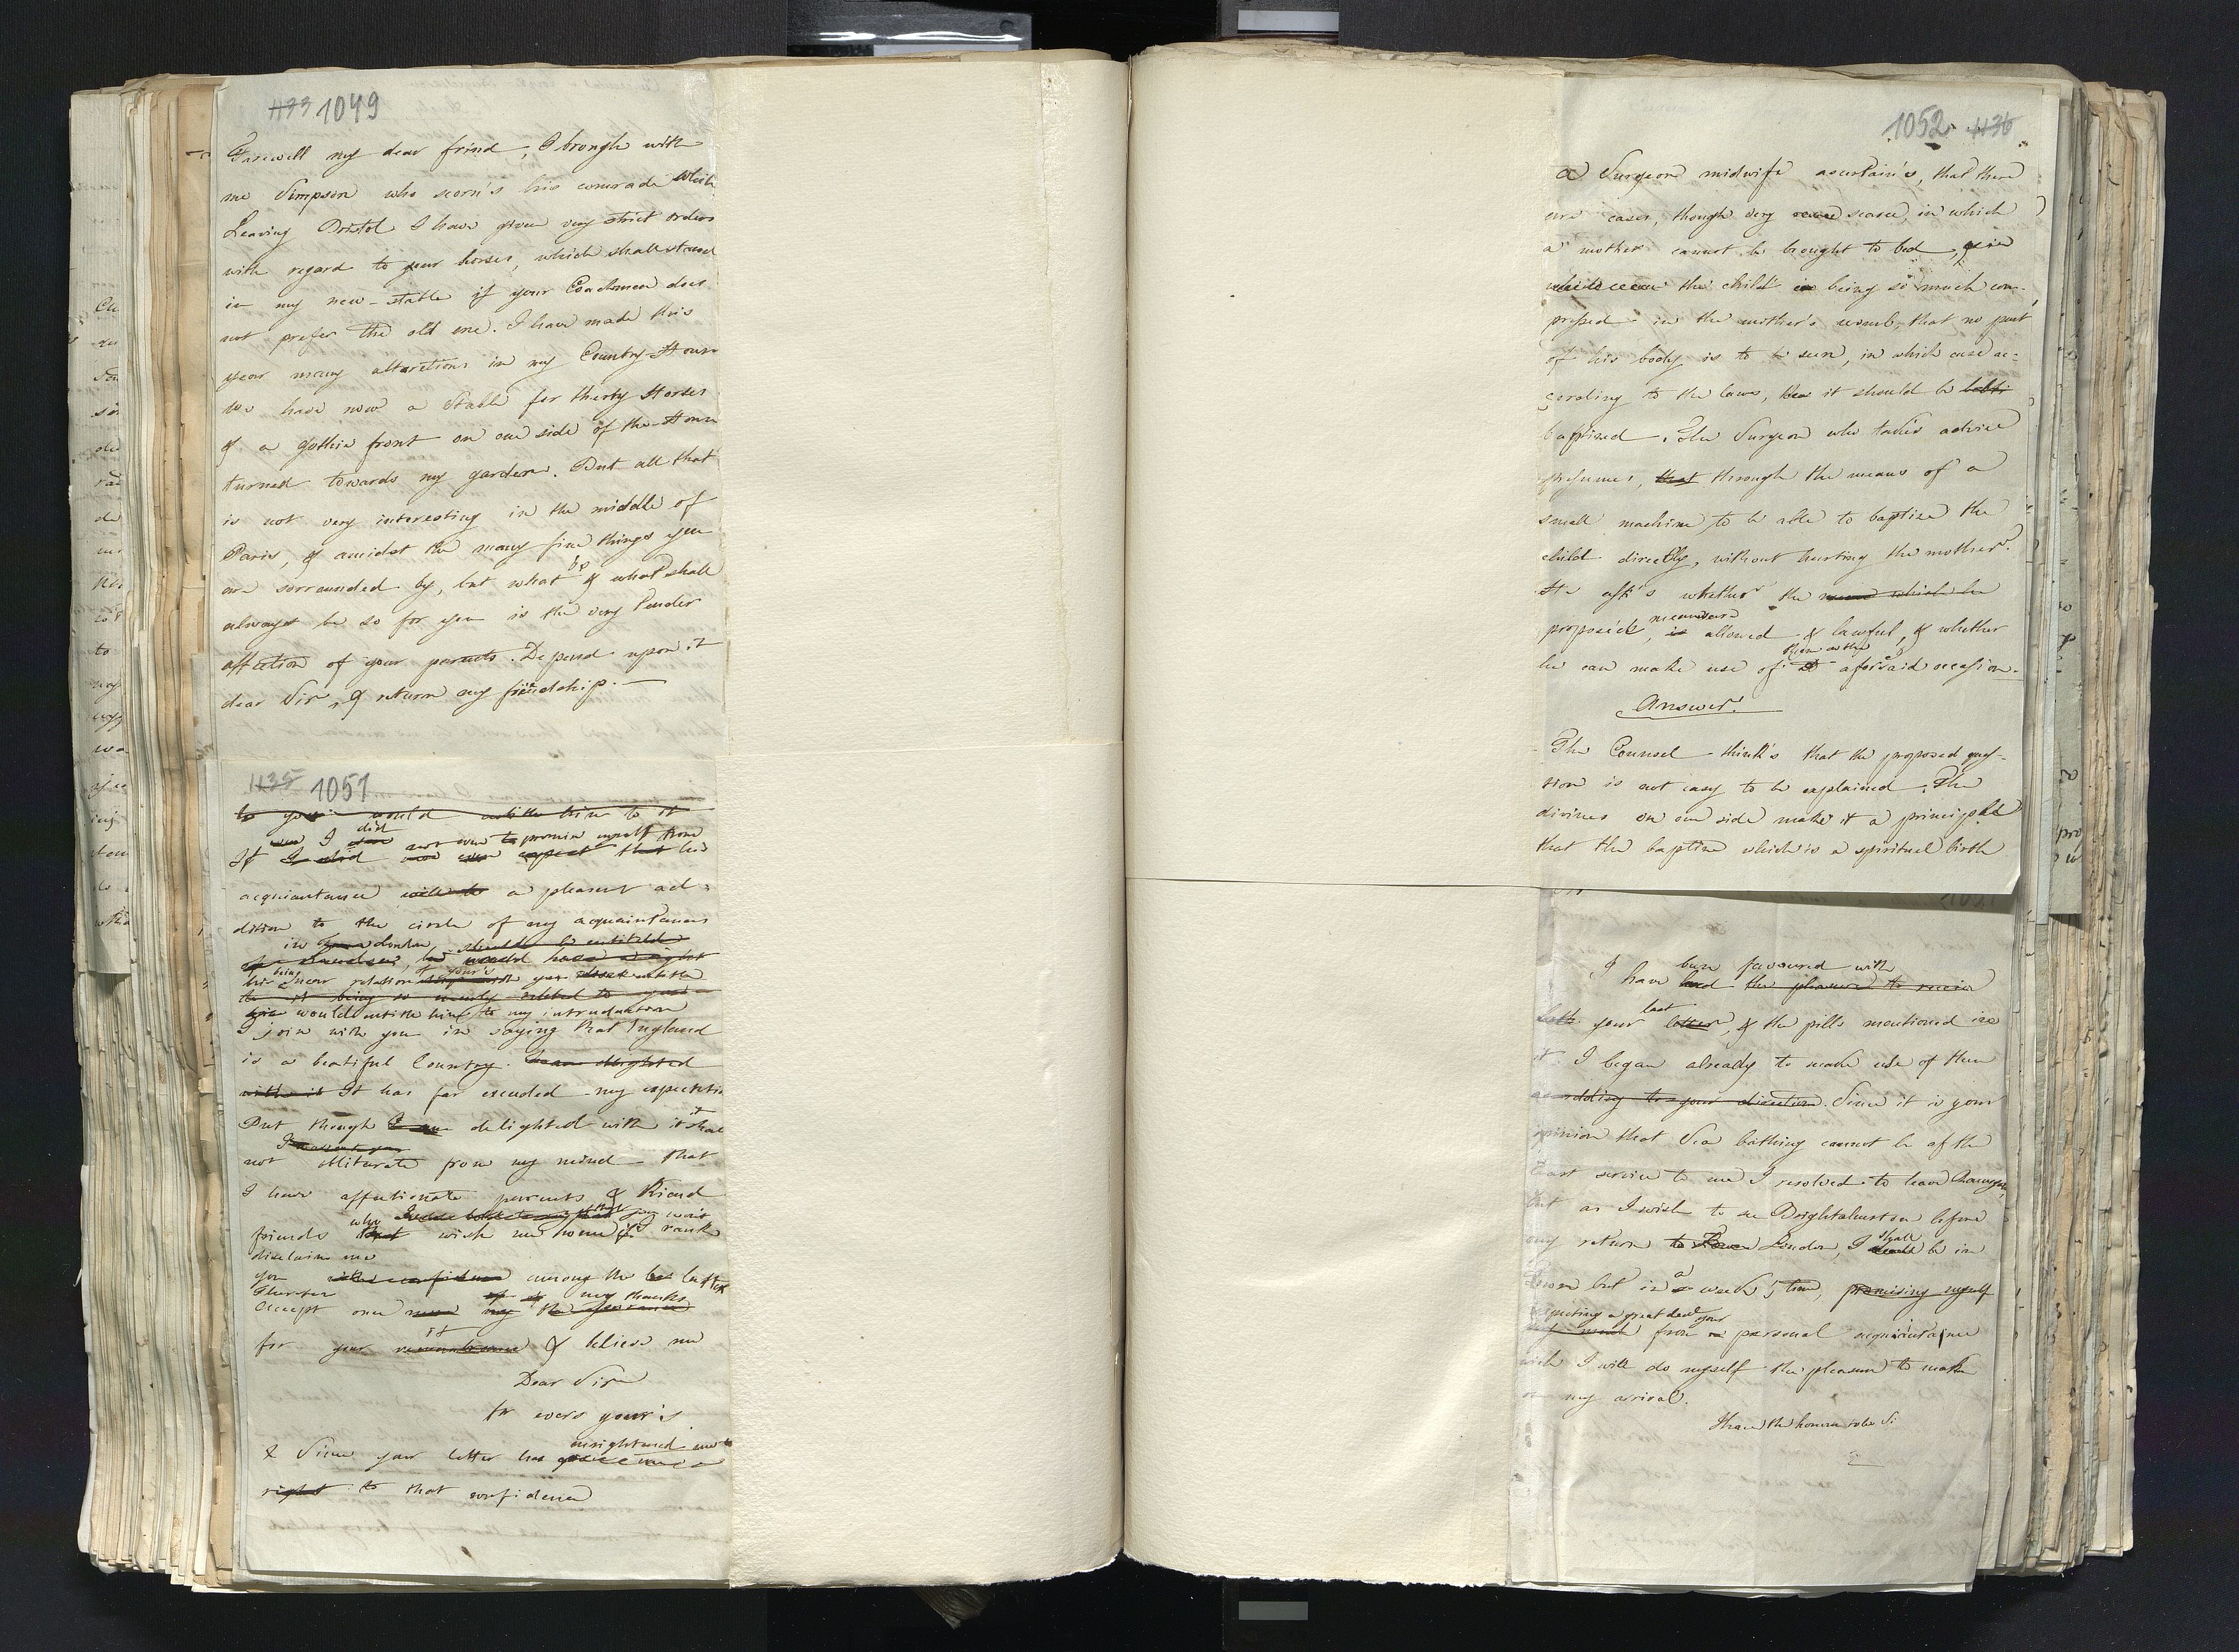 1133 1049
Farewell my dear frind, I brough with
me Simpson who scorn's his comrade While
Leaving Bristol I have given very strict orders
with regard to your horses, which shall stand
in my new-stable if your Coachman does
not prefer the old one. I have made this
year many altarations in my Country-House
We have now a Stable for thirty Horses
of a gothic front on one side of the House
turned towards my garden. But all that
is not very interesting in the middle of
Paris, & amidst the many fine things you
are sorrounded by, but what is & what shall
always be so for you is the very tender
affection of your parents. Depend upon it
dear Sir, & return my friendship.—
1135 1051
to you would entitle him to it
even I did not even to promise myself from
If I did not even expect that his
acquiantance will be a pleasent ad=
dition to the circle of my acquaintances
in London, should be entitled
of London, he would have a right
his being near relation of your's
to it being so nearly related to you
would entitle him to my introduction
I join with you in saying that England
is a beatiful Country. I am delighted
with it It has far exceeded my expectation
But though I am delighted with it it shall
not obliterate from my mind that
I have affectionate parents & Kiend
friends that who wish me home & I rank
disclaim me
you with confidence among the latter
Therefor my thanks
Accept once more my the assurance
for your remembrance & believe me
Dear Sir
for ever your's
& Since your letter has enrightened me
right to that confidence
1052 1136
a Surgeon midwife ascertain's, that there
are cases, though very scarce, in which
a mother cannot be brought to bed, & in
the child being so much com-
pressed in the mother's womb, that no part
of his body is to be seen, in which case ac=
cording to the laws, it should be
baptized. The Surgeon who take's advice
presumes, that through the means of a
small machine to be able to baptize the
child directly, without hurting the mother.
He ask's whether the mean which he
propose'd, is allowed & lawful, & whether
he can make use of aforsaid occasion.
Answer.
The Counsel think's that the proposed ques-
tion is not easy to be explained. The
divines on one side make it a principle
that the baptism which is a spiritual birth
been favoured with
I have had the pleasure to receive
last
both your letter, & the pills mentioned in
it. I began already to make use of them
according to your direction. Since it is your
opinion that Sea bathing cannot be of the
least service to me I resolved to leave
but as I wish to see Brighthelmston before
my return to London, I shall be in
Town but in a week's time, promising myself
expecting a great deal your
from personal acquaintance
wich I will do myself the pleasure to make
on my arrival.
I have the honour to be Si